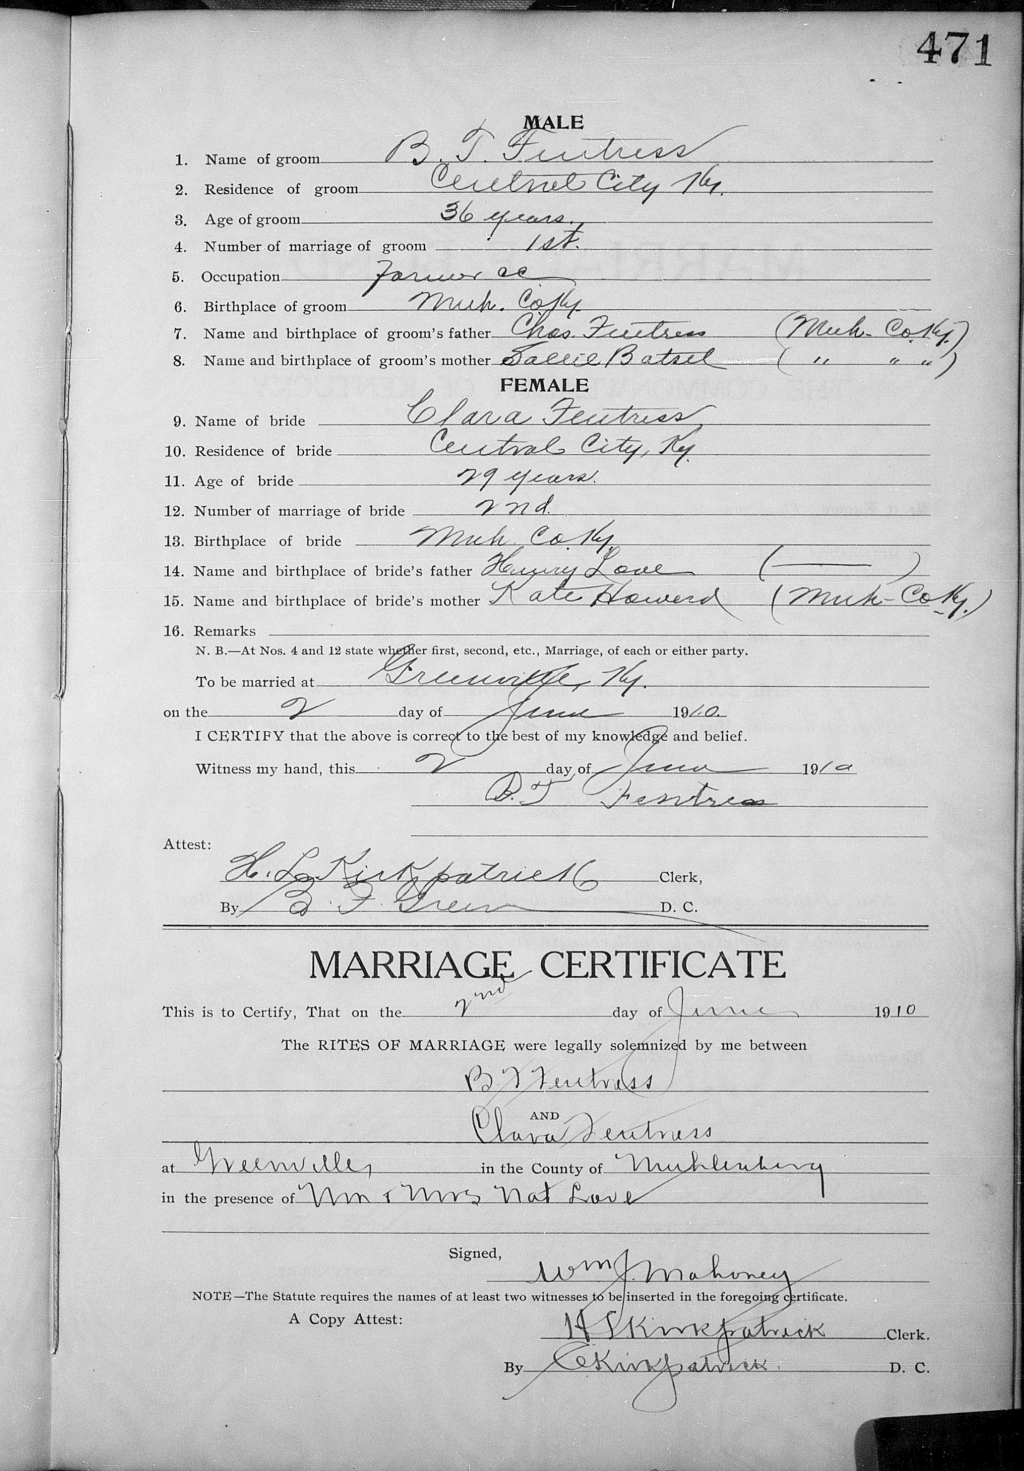 471
MALE
1. Name of groom B. T. Fentress
2. Residence of groom Central City Ky.
3. Age of groom 36 years.
4. Number of marriage of groom 1st.
5. Occupation Farmer
6. Birthplace of groom Muh. Co. Ky.
7. Name and birthplace of groom's father Chas. Fentress (Muh- Co. Ky.)
8. Name and birthplace of groom's mother Sallie Batsel ( " " " )
FEMALE
9. Name of bride Clara Fentress
10. Residence of bride Central City, Ky.
11. Age of bride 29 years.
12. Number of marriage of bride 2nd.
13. Birthplace of bride Muh. Co. Ky.
14. Name and birthplace of bride's father Henry Love ( —— )
15. Name and birthplace of bride's mother Kate Howerd (Muh- Co Ky.)
16. Remarks
N. B.—At Nos. 4 and 12 state whether first, second, etc., Marriage, of each or either party.
To be married at Greenville, Ky.
on the 2 day of June 1910.
I CERTIFY that the above is correct to the best of my knowledge and belief.
Witness my hand, this 2 day of June 1910
B. T Fentress
Attest:
H. L. Kirkpatrick Clerk,
By B. F. Green D. C.
MARRIAGE CERTIFICATE
This is to Certify, That on the 2nd day of June 1910
The RITES OF MARRIAGE were legally solemnized by me between
B T Fentress
AND
Clara Fentress
at Greenville, in the County of Muhlenberg
in the presence of Mr & Mrs Nat Love
Signed,
Wm J. Mahoney
NOTE—The Statute requires the names of at least two witnesses to be inserted in the foregoing certificate.
A Copy Attest:
H L Kirkpatrick Clerk.
By C Kirkpatrick. D. C.